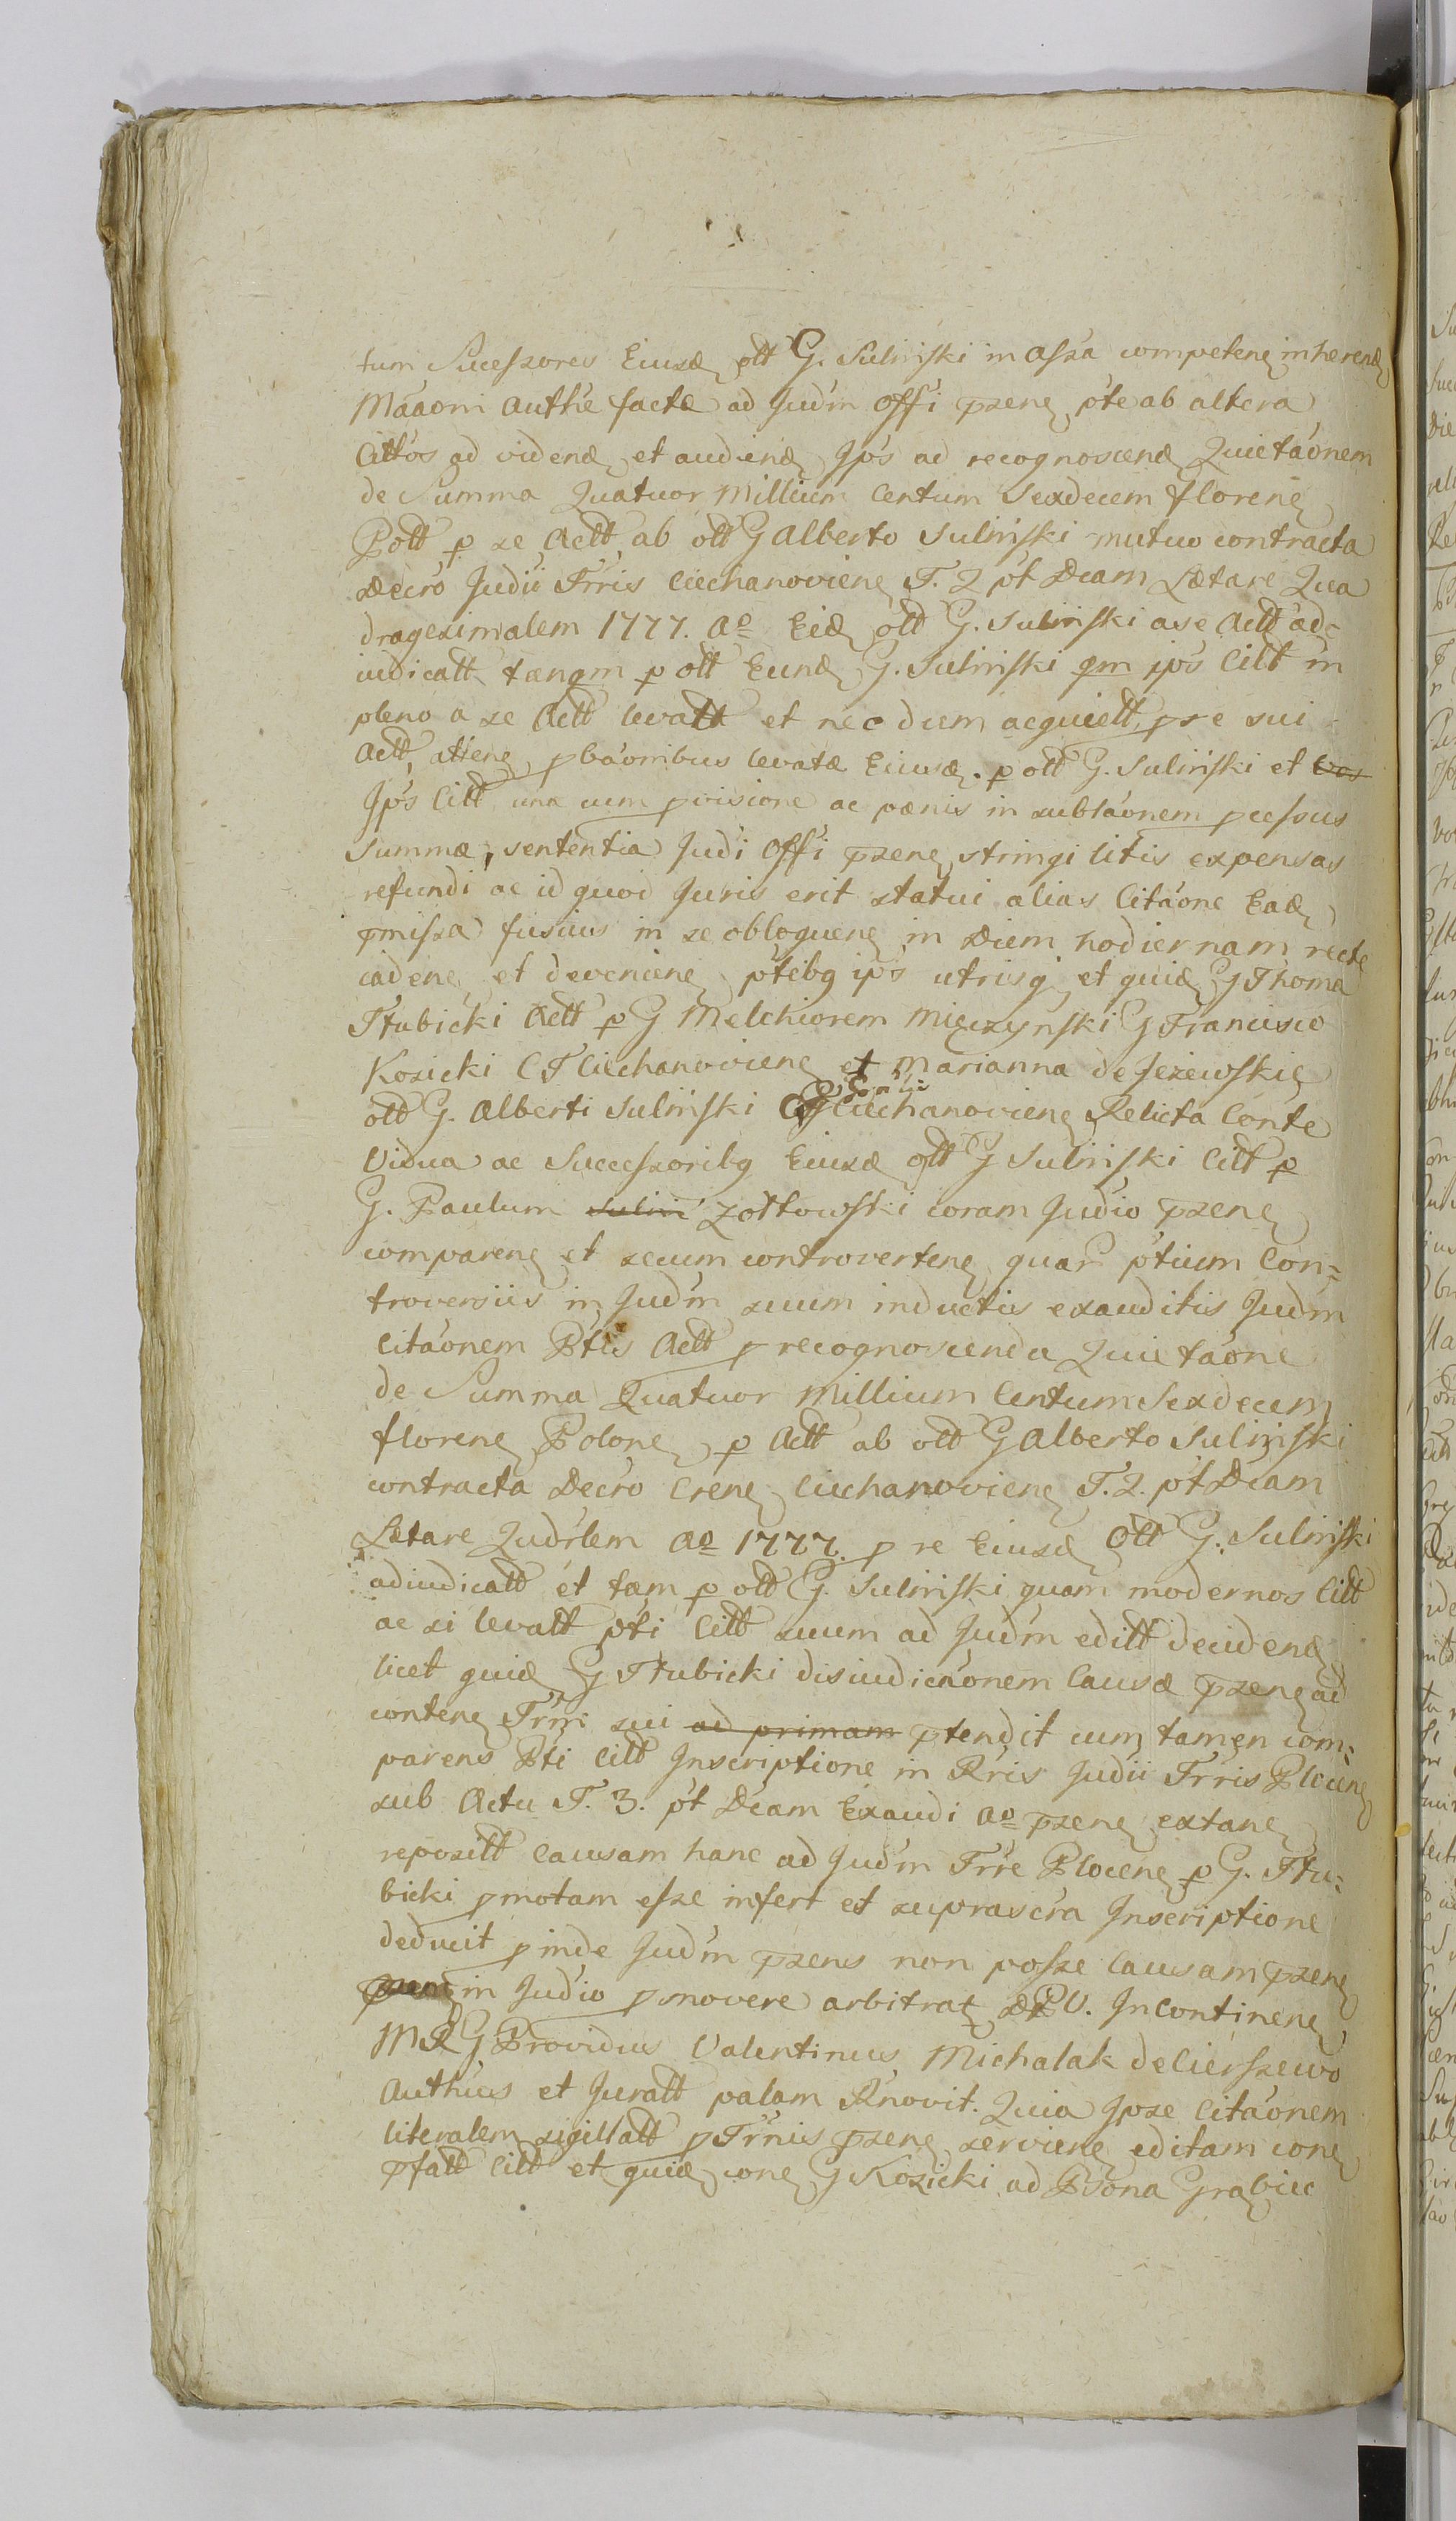 tum Sucessores Eiusd olt G. Suliński in assa competen inheren
Máaoni Authẽ factæ ad Judm Offi przen pte ab altera
Cittos ad viden et audien Jpos ad recognoscen Quietáonem
de Summa Quatuor Millium Centum Sexdecem floren
Poll p se Actt ab olt G Alberto Suliński mutuo contracta
Decro Judii Trris Ciechanovien F. 2 pt Dcam Lætare Qua
dragesimalem 1777. Ao Eid olt G. Suliński a se Actt ad=
iudicatt tanqm p olt Eund G. Suliński qm jpos Citt in
pleno a se Actt levatt et nec dum acquiett pre sui
Actt, attien pbaonibus levatæ Eiusd. p olt G. Suliński et vos
Jpos Citt una cum provisione ac pænis in subláonem pcessus
Summæ, sententia Judi Offi przen stringi litis expensas
refundi ac id quod Juris erit statui alias Citáone Ead
pmissa fusius in se obloquen in Diem hodiernam recte
caden et devenien ptibq ips utrisq et quid G Thoma
Tłubicki Actt p G Melchiorem Mięczynski G Francisco
Kosicki C T Ciechanovien et Marianna de Jezewskie
olt G. Alberti Suliński Ciechanovien Relicta Conte
Vidua ac Successoribq Eiusd olt G Suliński Citt p
G. Paulum Sulin Zołtowski coram Judio przen
comparen et secum controverten quar ptium Con=
troversiis in Judm suum inductis exauditis Judm
Citáonem Ptis Actt p recognoscenda Quietáone
de Summa Quatuor Millium Centum Sexdecem
floren Polon p Actt ab olt G Alberto Suliński
contracta Decro Cren Ciechanovien F. 2. pt Dcam
Lætare Qudrlem Ao 1777. p re Eiusd Olt G. Suliński
adiudicatt et tam p olt G. Suliński quam modernos Citt
ac si levatt pti Citt suum ad Judm editt deciden
licet quid G Tłubicki disiudicáonem Causæ przen ad
conten Trrni sui ad primam ptendit cum tamen com=
parens Pti Citt Inscriptione in Rris Judii Trris Plocen
sub Actu F. 3. pt Dcam Exaudi Ao przen extan
reposilt causam hanc ad Judm Trre Plocen p G. Tłu=
bicki pmotam esse infert et suprascra Inscriptione
deducit pinde Judm przens non posse causam przen
in Judio pmovere arbitrat DPV. Incontinen
MRG Providus Valentinus Michalak de Cierszewo
Authus et Juratt palam Rnovit. Quia Jpse Citáonem
literalem sigillatt p Trnis przen servien editam con
pfatt Citt et quid con G Kosicki ad Bona Grabiec